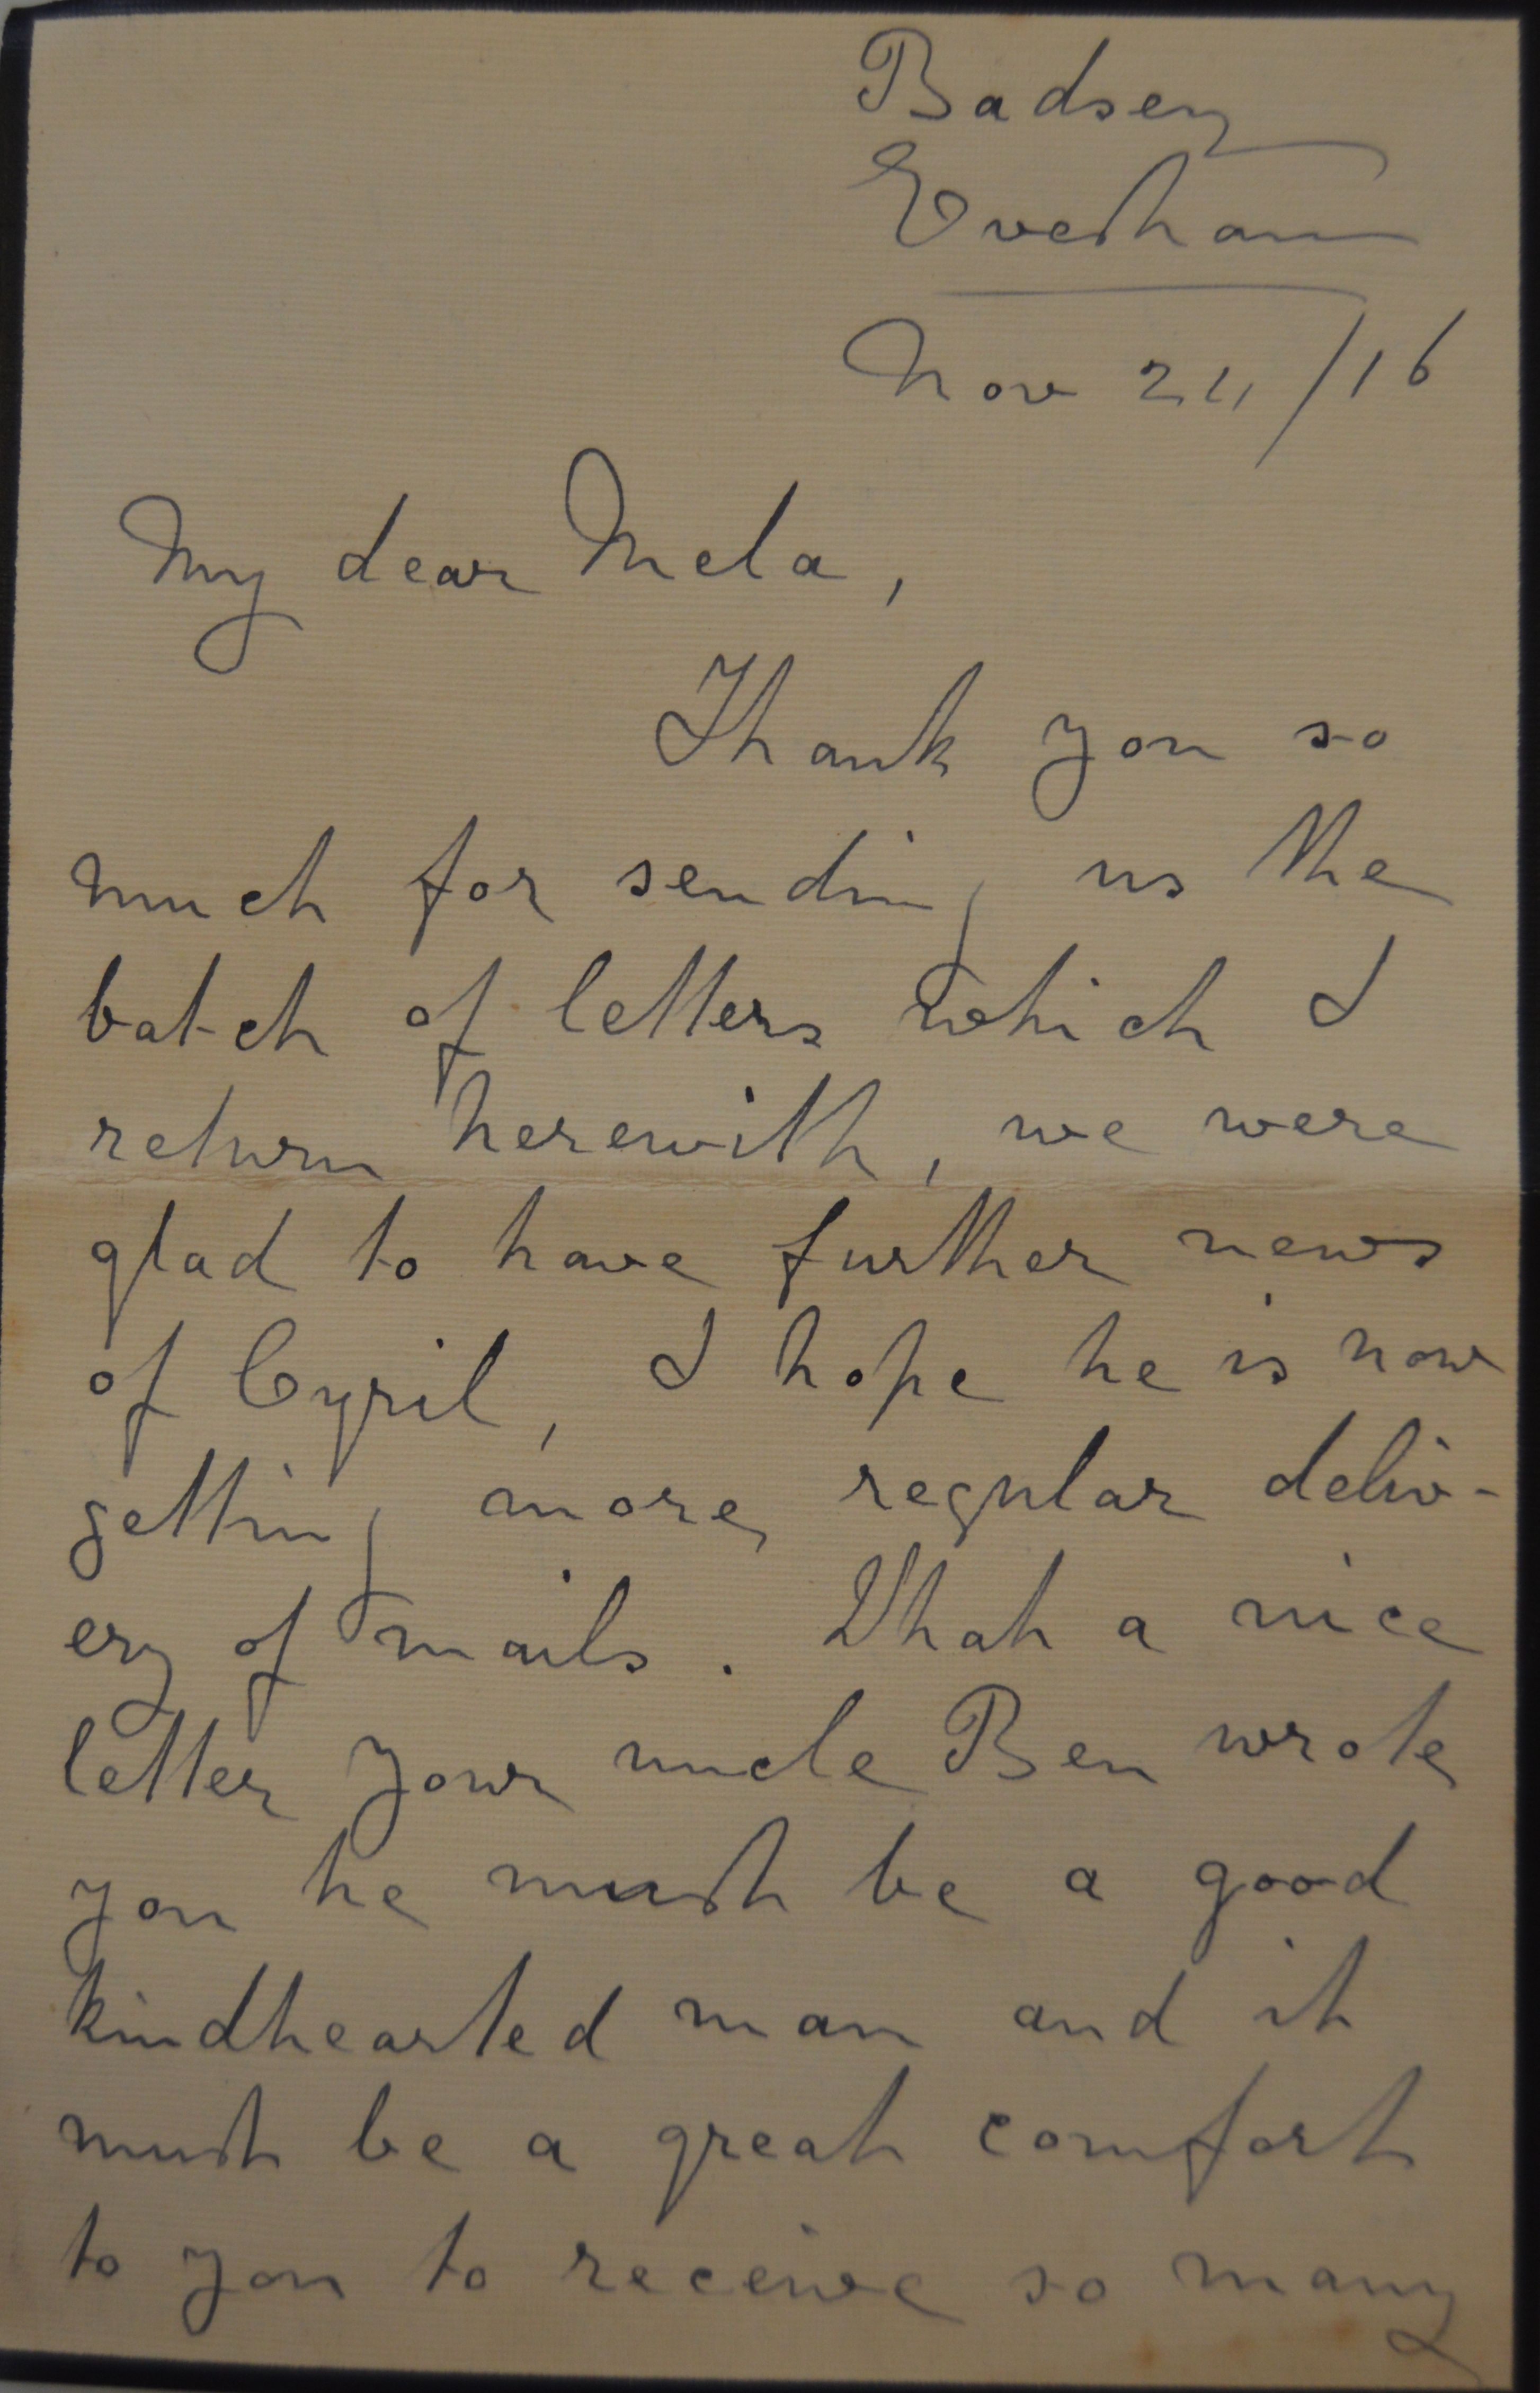 Badsey
Evesham
Nov 24/16
My dear Mela,
Thank you so
much for sending us the
batch of letters which I
return herewith, we were
glad to have further news
of Cyril, I hope he is now
getting more regular deliv-
ery of mails. What a nice
letter your uncle Ben wrote
you he must be a good
kindhearted man and it
must be a great comfort
to you to receive so many